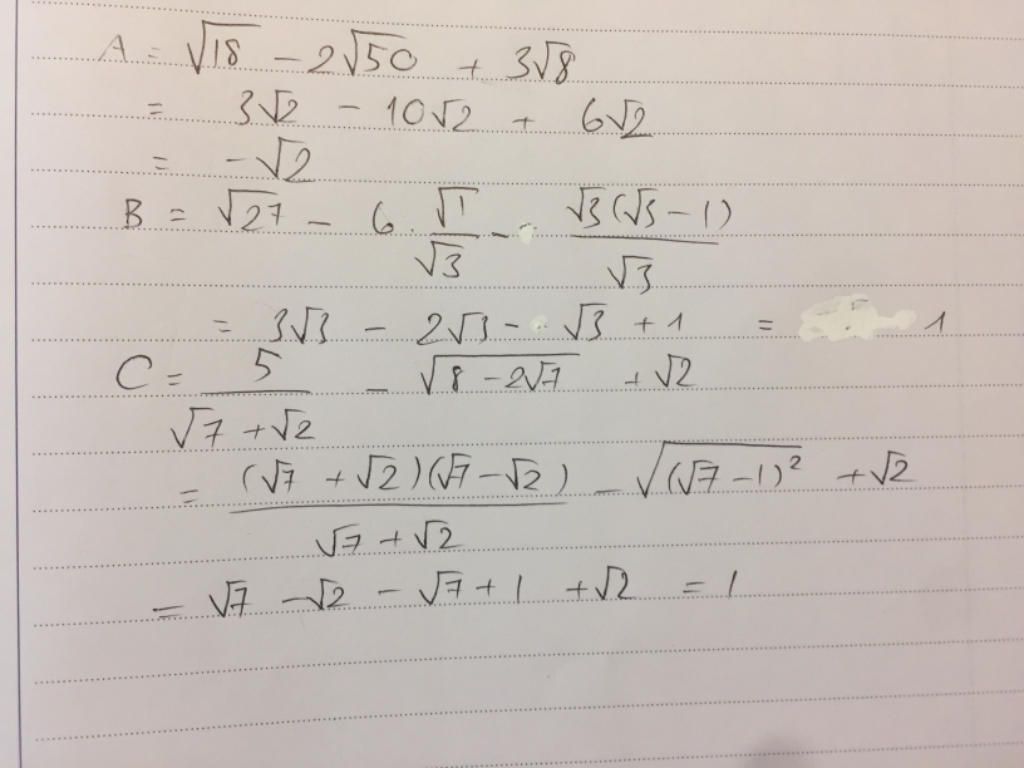 A = √18 - 2√50 + 3√8
= 3√2 - 10√2 + 6√2
= -√2
B = √27 - 6 . √1/√3 - √3(√3 - 1)/√3
= 3√3 - 2√3 - √3 + 1 = 1
C = 5/(√7 + √2) - √(8 - 2√7) + √2
= (√7 + √2)(√7 - √2)/(√7 + √2) - √((√7 - 1)²) + √2
= √7 - √2 - √7 + 1 + √2 = 1